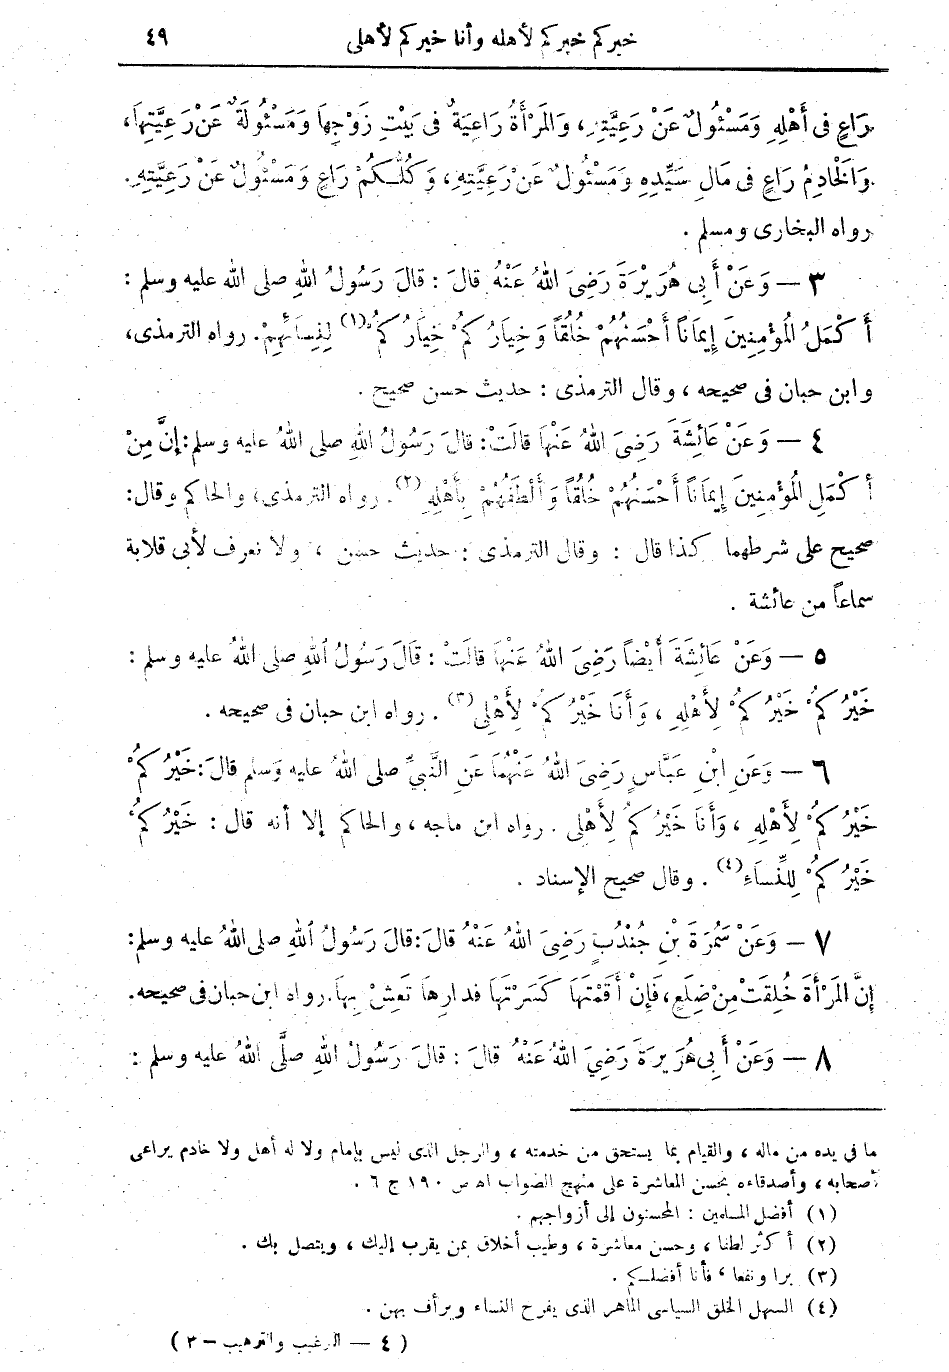 خيركم خيركم لأهله وأنا خيركم لأهلى ٤٩
رَاعٍ فى أَهْلِهِ وَمَسْئُولٌ عَنْ رَعِيَّتِهِ، وَالمَرْأَةُ رَاعِيَةٌ فى بَيْتِ زَوْجِهَا وَمَسْئُولَةٌ عَنْ رَعِيَّتِهَا،
وَالْخَادِمُ رَاعٍ فى مَالِ سَيِّدِهِ وَمَسْئُولٌ عَنْ رَعِيَّتِهِ، وَكُلُّكُمْ رَاعٍ وَمَسْئُولٌ عَنْ رَعِيَّتِهِ.
رواه البخارى ومسلم .
٣ — وَعَنْ أَبِى هُرَيْرَةَ رَضِىَ اللهُ عَنْهُ قَالَ : قَالَ رَسُولُ اللهِ صلى اللهُ عليه وسلم :
أَكْمَلُ المُؤْمِنِينَ إِيمَاناً أَحْسَنُهُمْ خُلُقاً وَخِيَارُكُمْ خِيَارُكُمْ (١) لِنِسَائِهِمْ. رواه الترمذى،
وابن حبان فى صحيحه ، وقال الترمذى : حديث حسن صحيح .
٤ — وَعَنْ عَائِشَةَ رَضِىَ اللهُ عَنْهَا قَالَتْ: قَالَ رَسُولُ اللهِ صلى اللهُ عليه وسلم: إِنَّ مِنْ
أَكْمَلِ المُؤْمِنِينَ إِيمَاناً أَحْسَنُهُمْ خُلُقاً وَأَلْطَفُهُمْ بِأَهْلِهِ (٢). رواه الترمذى، والحاكم وقال:
صحيح على شرطهما كذا قال : وقال الترمذى : حديث حسن ، ولا نعرف لأبى قلابة
سماعاً من عائشة .
٥ — وَعَنْ عَائِشَةَ أَيْضاً رَضِىَ اللهُ عَنْهَا قَالَتْ : قَالَ رَسُولُ اللهِ صلى اللهُ عليه وسلم :
خَيْرُكُمْ خَيْرُكُمْ لِأَهْلِهِ ، وَأَنَا خَيْرُكُمْ لِأَهْلِى (٣) . رواه ابن حبان فى صحيحه .
٦ — وَعَنِ ابْنِ عَبَّاسٍ رَضِىَ اللهُ عَنْهُمَا عَنِ النَّبِىِّ صلى اللهُ عليه وَسلم قَالَ: خَيْرُكُمْ
خَيْرُكُمْ لِأَهْلِهِ ، وَأَنَا خَيْرُكُمْ لِأَهْلِى . رواه ابن ماجه ، والحاكم إلا أنه قال : خَيْرُكُمْ
خَيْرُكُمْ لِلنِّسَاءِ (٤) . وقال صحيح الإسناد .
٧ — وَعَنْ سَمُرَةَ بْنِ جُنْدُبٍ رَضِىَ اللهُ عَنْهُ قَالَ: قَالَ رَسُولُ اللهِ صلى اللهُ عليه وسلم:
إِنَّ المَرْأَةَ خُلِقَتْ مِنْ ضِلَعٍ، فَإِنْ أَقَمْتَهَا كَسَرْتَهَا فَدَارِهَا تَعِشْ بِهَا. رواه ابن حبان فى صحيحه.
٨ — وَعَنْ أَبِى هُرَيرَةَ رَضِىَ اللهُ عَنْهُ قَالَ : قَالَ رَسُولُ اللهِ صلَّى اللهُ عليه وسلم :
ما فى يده من ماله ، والقيام بما يستحق من خدمته ، والرجل الذى ليس بإمام ولا له أهل ولا خادم يراعى
أصحابه ، وأصدقاءه بحسن المعاشرة على منهج الصواب اه ص ١٩٠ ج ٦ .
(١) أفضل المسلمين : المحسنون إلى أزواجهم .
(٢) أكثر لطفا ، وحسن معاشرة ، وطيب أخلاق بمن يقرب إليك ، ويتصل بك .
(٣) برا ونفعا ، فأنا أفضلكم .
(٤) السهل الخلق السياسى الماهر الذى يفرح النساء ويرأف بهن .
( ٤ — الترغيب والترهيب — ٣ )